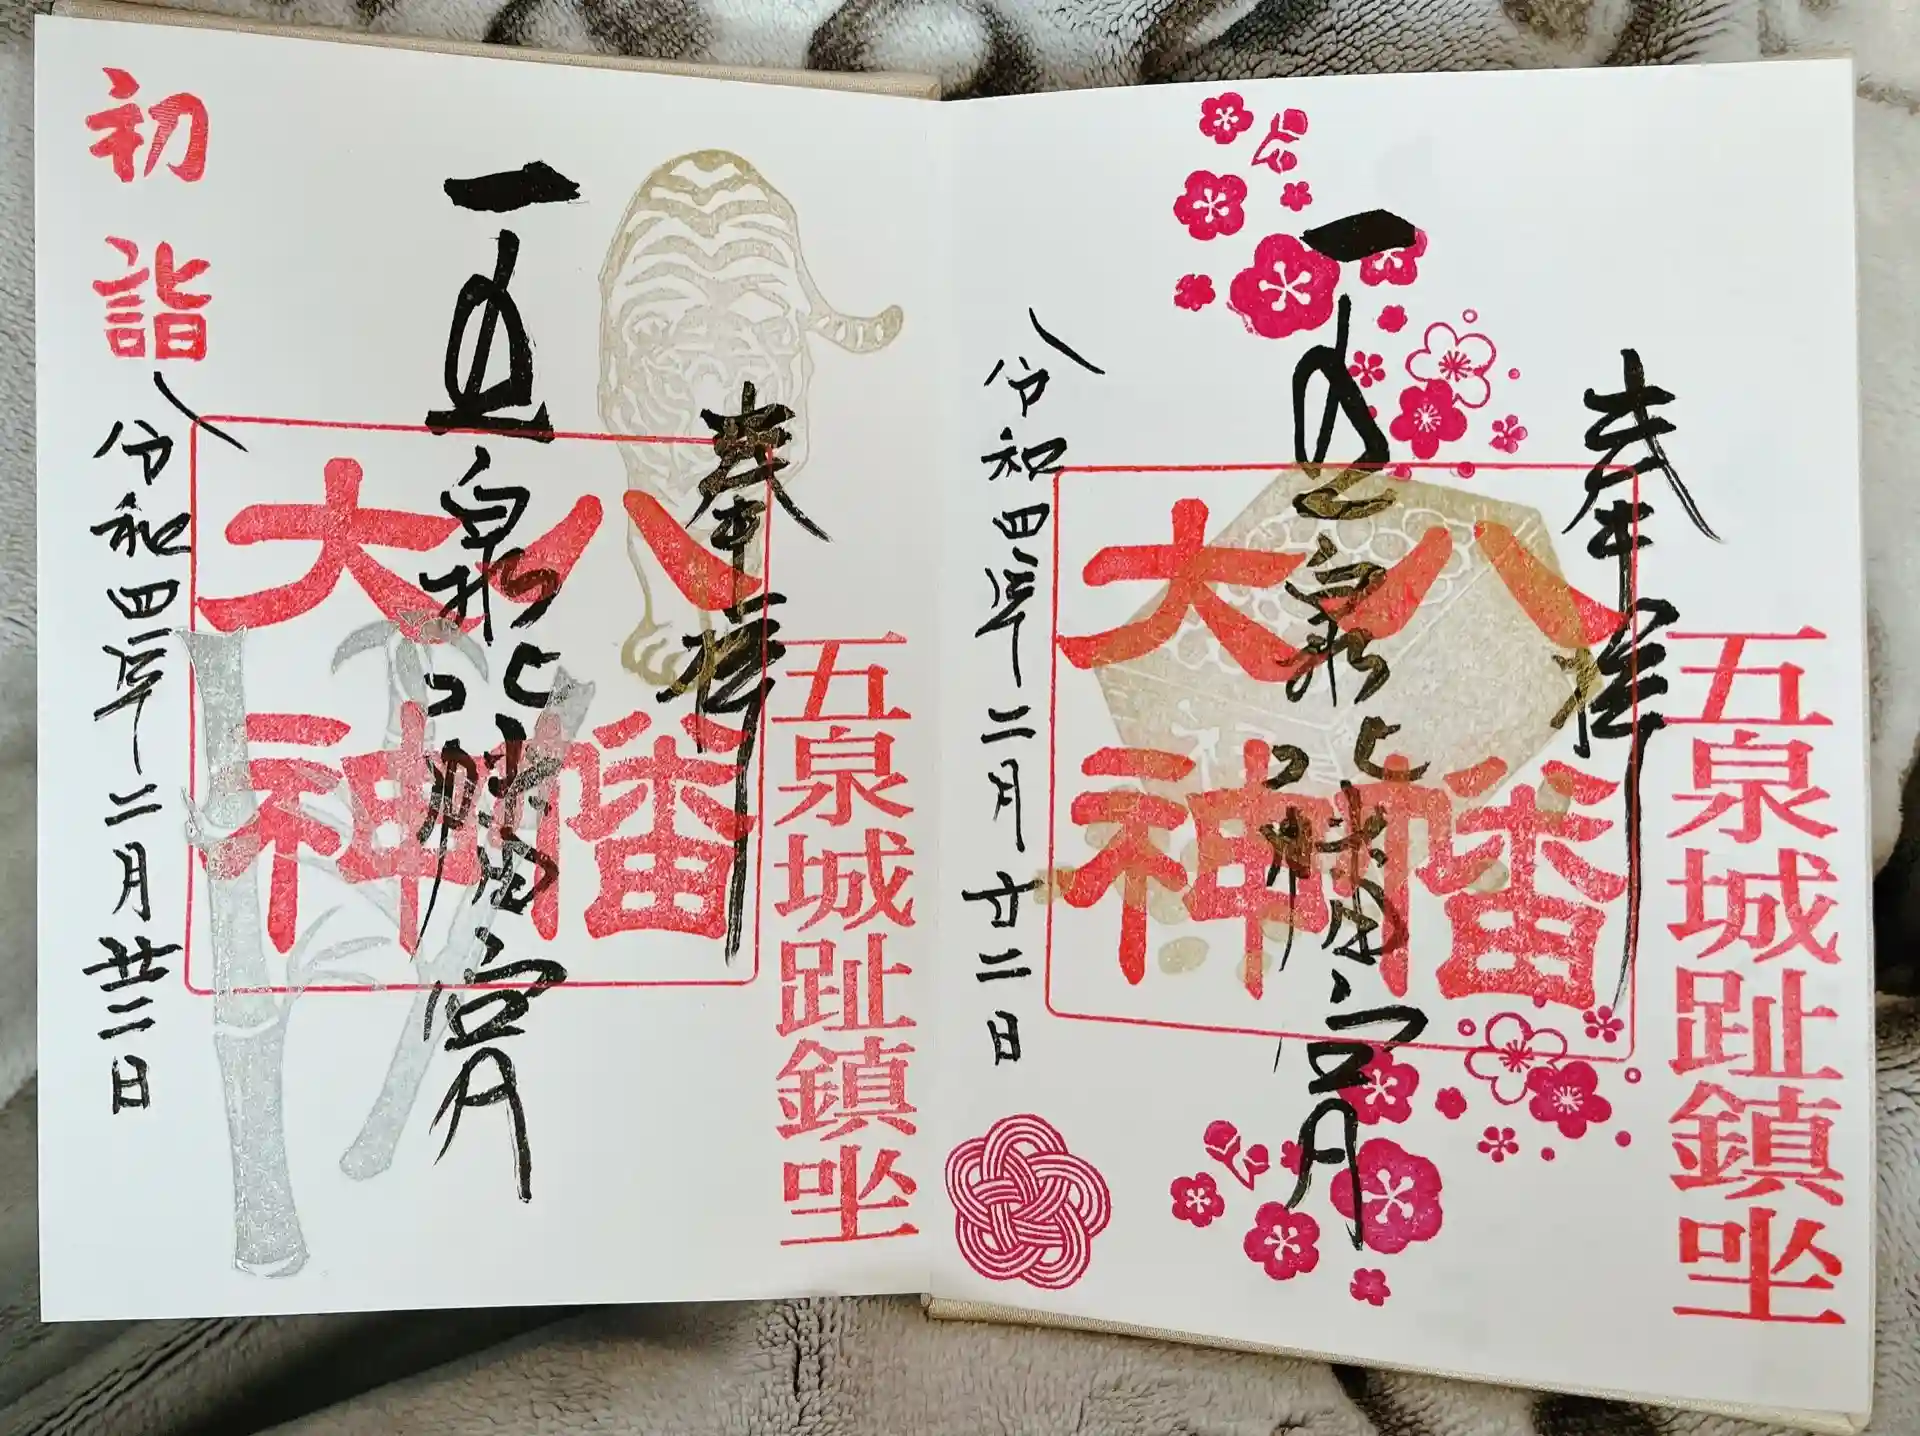 五泉城趾鎮坐
奉拝
五泉八幡宮
八幡
大神
令和四年二月廿二日
五泉城趾鎮坐
奉拝
五泉八幡宮
八幡
大神
初詣
令和四年二月廿二日